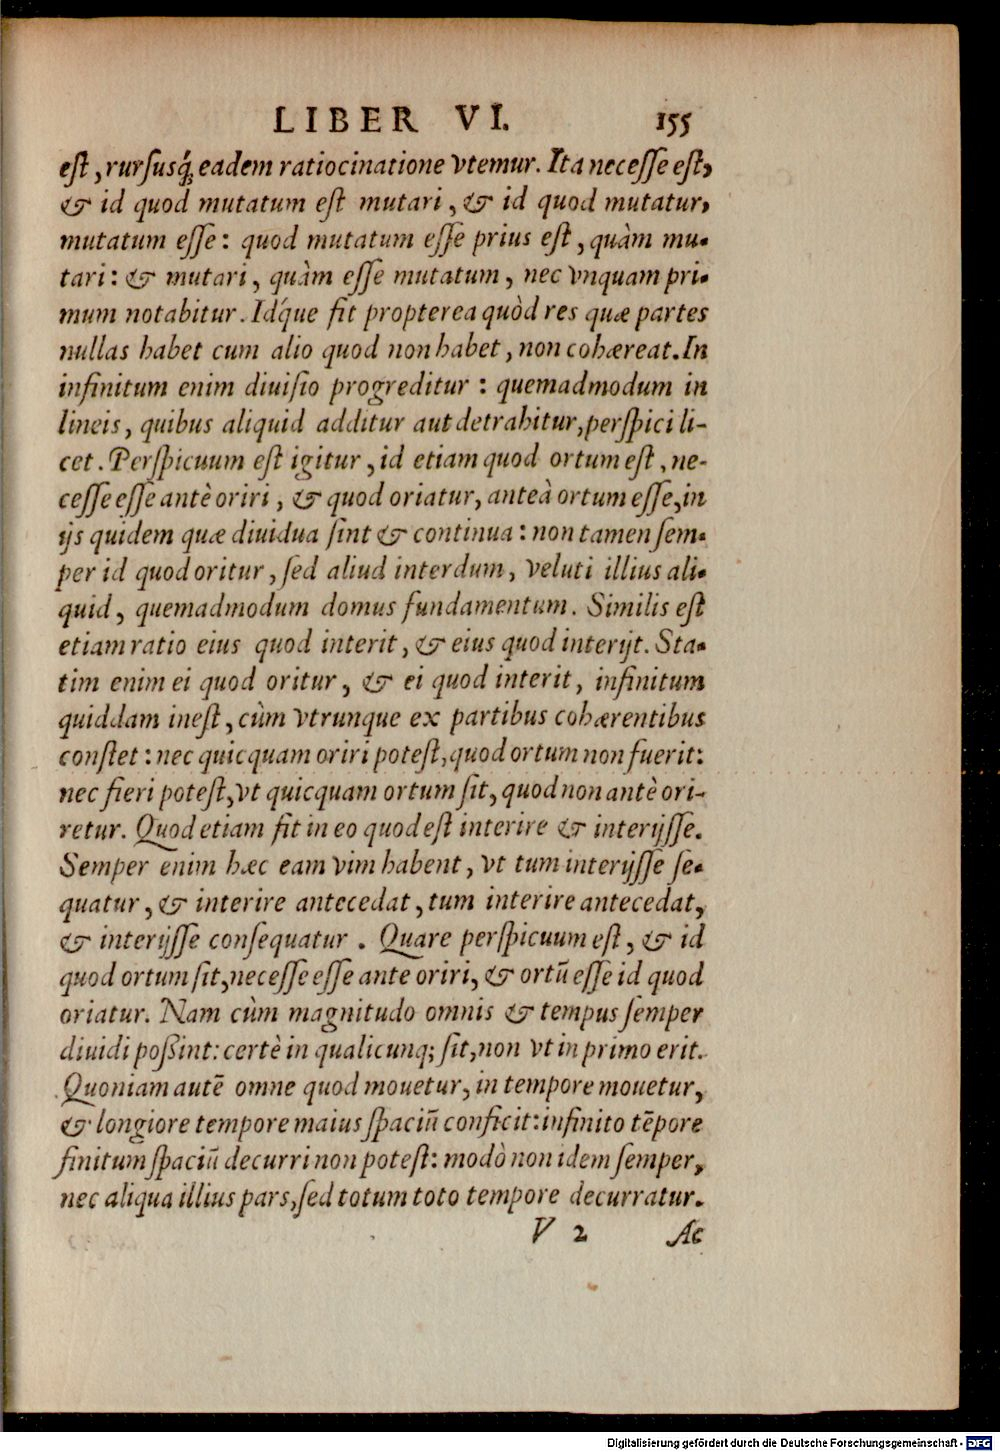 LIBER VI. 155
eſt, rurſusq́; eadem ratiocinatione vtemur. Ita neceſſe eſt,
& id quod mutatum eſt mutari, & id quod mutatur,
mutatum eſſe: quod mutatum eſſe prius eſt, quàm mu-
tari: & mutari, quàm eſſe mutatum, nec vnquam pri-
mum notabitur. Id́que fit propterea quòd res quæ partes
nullas habet cum alio quod non habet, non cohæreat. In
infinitum enim diuiſio progreditur: quemadmodum in
lineis, quibus aliquid additur aut detrahitur, perſpici li-
cet. Perſpicuum eſt igitur, id etiam quod ortum eſt, ne-
ceſſe eſſe antè oriri, & quod oriatur, anteà ortum eſſe, in
ijs quidem quæ diuidua ſint & continua: non tamen ſem-
per id quod oritur, ſed aliud interdum, veluti illius ali-
quid, quemadmodum domus fundamentum. Similis eſt
etiam ratio eius quod interit, & eius quod interijt. Sta-
tim enim ei quod oritur, & ei quod interit, infinitum
quiddam ineſt, cùm vtrunque ex partibus cohærentibus
conſtet: nec quicquam oriri poteſt, quod ortum non fuerit:
nec fieri poteſt, vt quicquam ortum ſit, quod non antè ori-
retur. Quod etiam fit in eo quod eſt interire & interijſſe.
Semper enim hæc eam vim habent, vt tum interijſſe ſe-
quatur, & interire antecedat, tum interire antecedat,
& interijſſe conſequatur. Quare perſpicuum eſt, & id
quod ortum ſit, neceſſe eſſe ante oriri, & ortū eſſe id quod
oriatur. Nam cùm magnitudo omnis & tempus ſemper
diuidi poßint: certè in qualicunq; ſit, non vt in primo erit.
Quoniam autē omne quod mouetur, in tempore mouetur,
& longiore tempore maius ſpaciū conficit: infinito tēpore
finitum ſpaciū decurri non poteſt: modò non idem ſemper,
nec aliqua illius pars, ſed totum toto tempore decurratur.
V 2 Ac
Digitalisierung gefördert durch die Deutsche Forschungsgemeinschaft - DFG